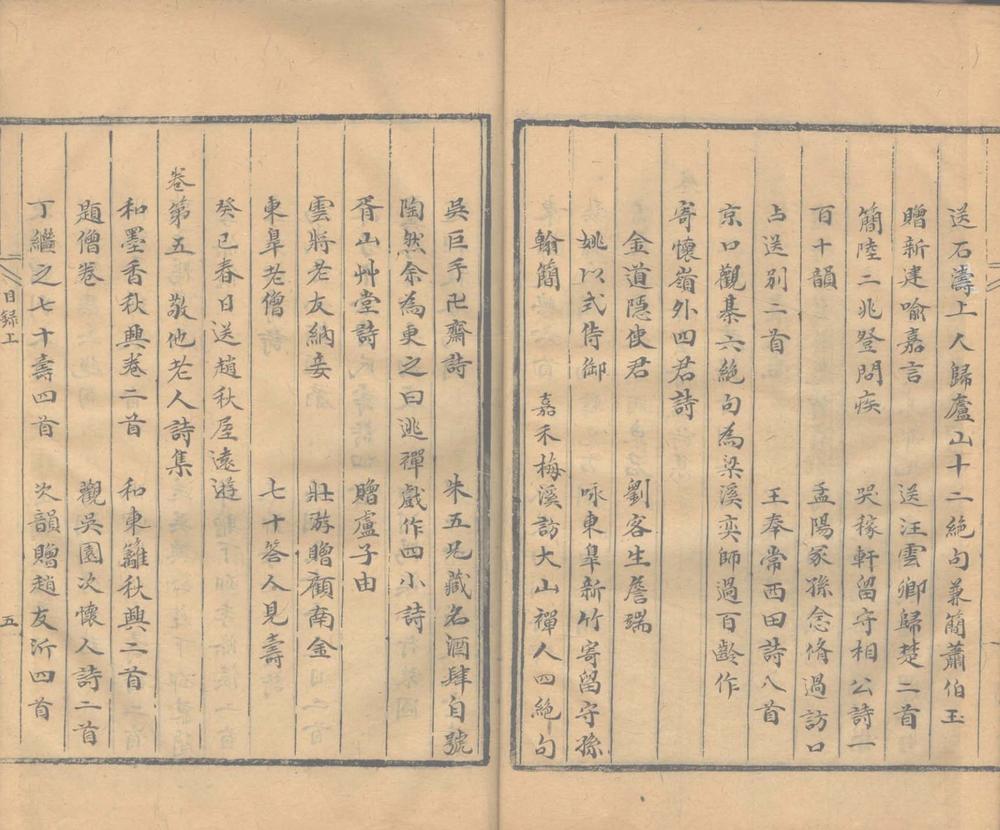 送石濤上人歸廬山十二絕句兼簡蕭伯玉
贈新建喻嘉言　送汪雲卿歸楚二首
簡陸二兆登問疾　哭稼軒留守相公詩一
百十韻　孟陽冢孫念脩過訪口
占送別二首　王奉常西田詩八首
京口觀棊六絕句為梁溪奕師過百齡作
寄懷嶺外四君詩
金道隱使君　劉客生詹端
姚以式侍御　咏東臯新竹寄留守孫
翰簡　嘉禾梅溪訪大山禪人四絕句
吳巨手卍齋詩　朱五兄藏名酒肆自號
陶然余為更之曰逃禪戲作四小詩
胥山艸堂詩　贈盧子由
雲將老友納妾　壯游贈顧南金
東臯老僧　七十答人見壽
癸巳春日送趙秋屋遠遊
卷第五　敬他老人詩集
和墨香秋興卷二首　和東籬秋興二首
題僧卷　觀吳園次懷人詩二首
丁繼之七十壽四首　次韻贈趙友沂四首
目錄上
五